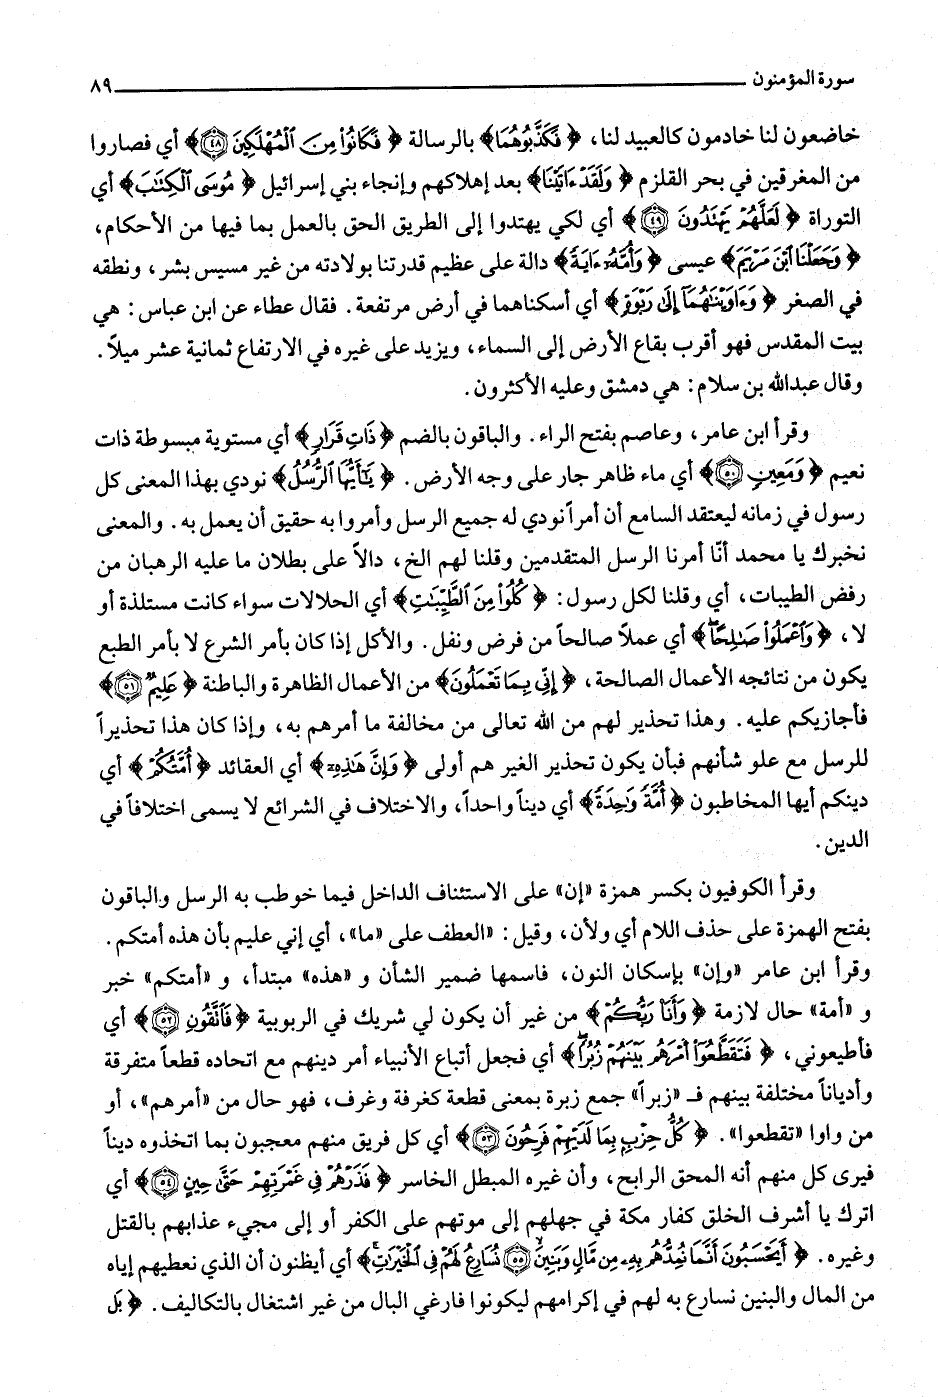 سورة المؤمنون ٨٩
خاضعون لنا خادمون كالعبيد لنا، ﴿ فَكَذَّبُوهُمَا﴾ بالرسالة ﴿ فَكَانُواْ مِنَ ٱلْمُهْلَكِينَ (٤٨)﴾ أي فصاروا
من المغرقين في بحر القلزم ﴿ وَلَقَدْ ءَاتَيْنَا﴾ بعد إهلاكهم وإنجاء بني إسرائيل ﴿ مُوسَى ٱلْكِتَٰبَ﴾ أي
التوراة ﴿ لَعَلَّهُمْ يَهْتَدُونَ (٤٩)﴾ أي لكي يهتدوا إلى الطريق الحق بالعمل بما فيها من الأحكام،
﴿ وَجَعَلْنَا ٱبْنَ مَرْيَمَ﴾ عيسى ﴿ وَأُمَّهُۥ ءَايَةً﴾ دالة على عظيم قدرتنا بولادته من غير مسيس بشر، ونطقه
في الصغر ﴿ وَءَاوَيْنَٰهُمَآ إِلَىٰ رَبْوَةٍ﴾ أي أسكناهما في أرض مرتفعة. فقال عطاء عن ابن عباس: هي
بيت المقدس فهو أقرب بقاع الأرض إلى السماء، ويزيد على غيره في الارتفاع ثمانية عشر ميلاً.
وقال عبدالله بن سلام: هي دمشق وعليه الأكثرون.
وقرأ ابن عامر، وعاصم بفتح الراء. والباقون بالضم ﴿ ذَاتِ قَرَارٍ﴾ أي مستوية مبسوطة ذات
نعيم ﴿ وَمَعِينٍ (٥٠)﴾ أي ماء ظاهر جار على وجه الأرض. ﴿ يَٰٓأَيُّهَا ٱلرُّسُلُ﴾ نودي بهذا المعنى كل
رسول في زمانه ليعتقد السامع أن أمراً نودي له جميع الرسل وأمروا به حقيق أن يعمل به. والمعنى
نخبرك يا محمد أنّا أمرنا الرسل المتقدمين وقلنا لهم الخ، دالاً على بطلان ما عليه الرهبان من
رفض الطيبات، أي وقلنا لكل رسول: ﴿ كُلُواْ مِنَ ٱلطَّيِّبَٰتِ﴾ أي الحلالات سواء كانت مستلذة أو
لا، ﴿ وَٱعْمَلُواْ صَٰلِحًا﴾ أي عملاً صالحاً من فرض ونفل. والأكل إذا كان بأمر الشرع لا بأمر الطبع
يكون من نتائجه الأعمال الصالحة، ﴿ إِنِّى بِمَا تَعْمَلُونَ﴾ من الأعمال الظاهرة والباطنة ﴿ عَلِيمٌ (٥١)﴾
فأجازيكم عليه. وهذا تحذير لهم من الله تعالى من مخالفة ما أمرهم به، وإذا كان هذا تحذيراً
للرسل مع علو شأنهم فبأن يكون تحذير الغير هم أولى ﴿ وَإِنَّ هَٰذِهِۦٓ﴾ أي العقائد ﴿ أُمَّتُكُمْ﴾ أي
دينكم أيها المخاطبون ﴿ أُمَّةً وَٰحِدَةً﴾ أي ديناً واحداً، والاختلاف في الشرائع لا يسمى اختلافاً في
الدين.
وقرأ الكوفيون بكسر همزة «إن» على الاستئناف الداخل فيما خوطب به الرسل والباقون
بفتح الهمزة على حذف اللام أي ولأن، وقيل: «العطف على «ما»، أي إني عليم بأن هذه أمتكم.
وقرأ ابن عامر «وإن» بإسكان النون، فاسمها ضمير الشأن و «هذه» مبتدأ، و «أمتكم» خبر
و «أمة» حال لازمة ﴿ وَأَنَا۠ رَبُّكُمْ﴾ من غير أن يكون لي شريك في الربوبية ﴿ فَٱتَّقُونِ (٥٢)﴾ أي
فأطيعوني، ﴿ فَتَقَطَّعُوٓاْ أَمْرَهُم بَيْنَهُمْ زُبُرًا﴾ أي فجعل أتباع الأنبياء أمر دينهم مع اتحاده قطعاً متفرقة
وأدياناً مختلفة بينهم فـ «زبراً» جمع زبرة بمعنى قطعة كغرفة وغرف، فهو حال من «أمرهم»، أو
من واوا «تقطعوا». ﴿ كُلُّ حِزْبٍۭ بِمَا لَدَيْهِمْ فَرِحُونَ (٥٣)﴾ أي كل فريق منهم معجبون بما اتخذوه ديناً
فيرى كل منهم أنه المحق الرابح، وأن غيره المبطل الخاسر ﴿ فَذَرْهُمْ فِى غَمْرَتِهِمْ حَتَّىٰ حِينٍ (٥٤)﴾ أي
اترك يا أشرف الخلق كفار مكة في جهلهم إلى موتهم على الكفر أو إلى مجيء عذابهم بالقتل
وغيره. ﴿ أَيَحْسَبُونَ أَنَّمَا نُمِدُّهُم بِهِۦ مِن مَّالٍ وَبَنِينَ (٥٥) نُسَارِعُ لَهُمْ فِى ٱلْخَيْرَٰتِ﴾ أي أيظنون أن الذي نعطيهم إياه
من المال والبنين نسارع به لهم في إكرامهم ليكونوا فارغي البال من غير اشتغال بالتكاليف. ﴿ بَل